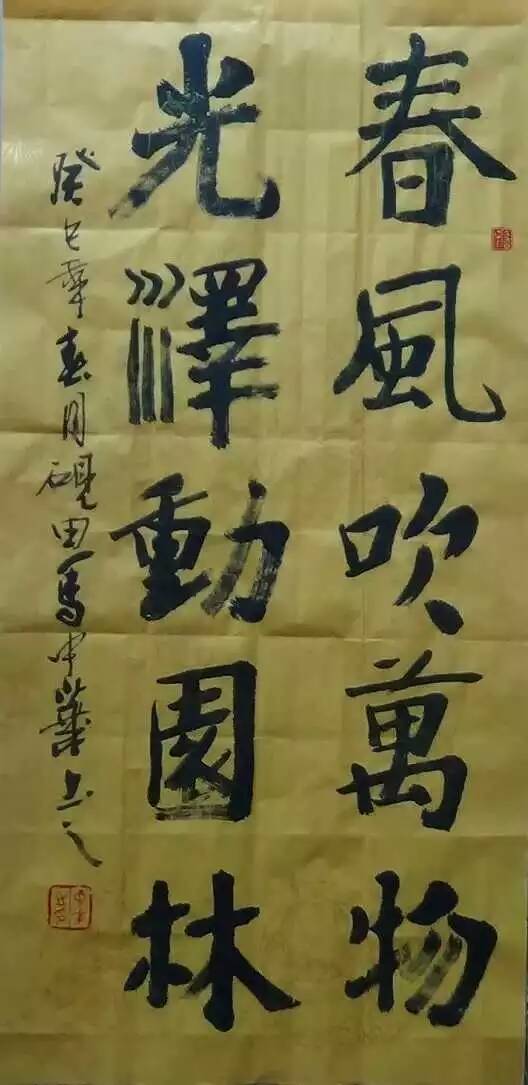 春風吹萬物
光澤動園林
癸巳年春月硯田馬中華书之